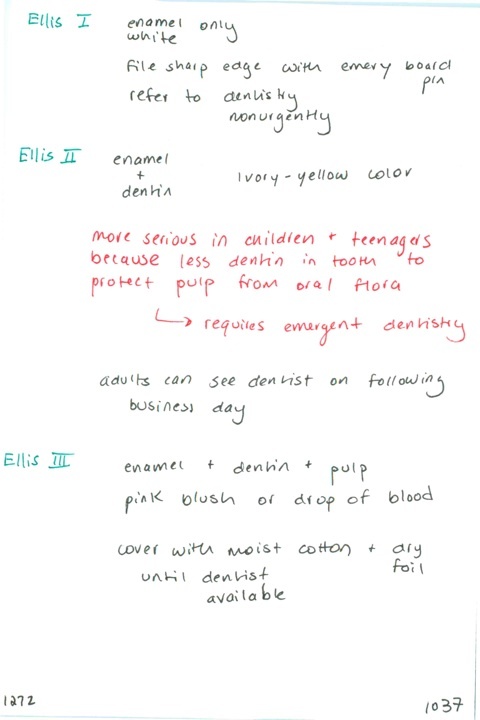 Ellis I enamel only
white
File sharp edge with emery board
prn
refer to dentistry
nonurgently
Ellis II enamel
+
dentin
Ivory-yellow color
more serious in children + teenagers
because less dentin in tooth to
protect pulp from oral flora
↳ requires emergent dentistry
adults can see dentist on following
business day
Ellis III enamel + dentin + pulp
pink blush or drop of blood
cover with moist cotton + dry
foil
until dentist
available
1272
1037